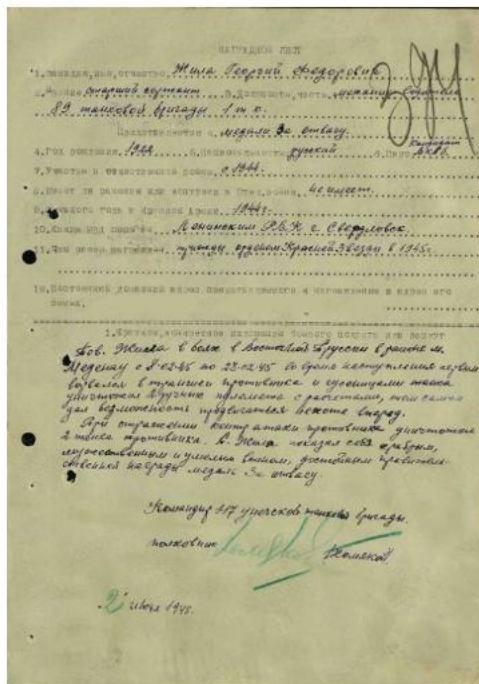 НАГРАДНОЙ ЛИСТ
1. Фамилия, имя, отчество Жила Георгий Федорович
2. Звание старший сержант 3. Должность, часть механик-водитель
89 танковой бригады 1 т.к.
Представляется к медали За отвагу
4. Год рождения 1922 5. Национальность русский 6. Парт. Кандидат ВКПб.
7. Участие в отечественной войне с 1944.
8. Имеет ли ранения или контузии в Отеч. войне не имеет.
9. С какого года в Красной Армии 1944 г.
10. Каким РВК призван Ленинским Р.В.К г. Свердловск.
11. Чем ранее награжден орденом Красной Звезды в 1945 г.
12. Постоянный домашний адрес представляемого к награждению и адрес его
семьи.
1. Краткое, конкретное изложение боевого подвига или заслуг
Тов. Жила в боях в Восточной Пруссии в районе м.
Меденау с 2-02-45 по 22-02-45 во время наступления первым
ворвался в траншеи противника и гусеницами танка
уничтожил 2 ручных пулемета с расчетами, тем самым
дал возможность продвигаться пехоте вперед.
При отражении контратаки противника уничтожил
2 танка противника. т. Жила показал себя храбрым,
мужественным и умелым воином, достойным правитель-
ственной награды медаль За отвагу.
Командир 117 танковой бригады.
полковник Хомяков.
"2" 1945.